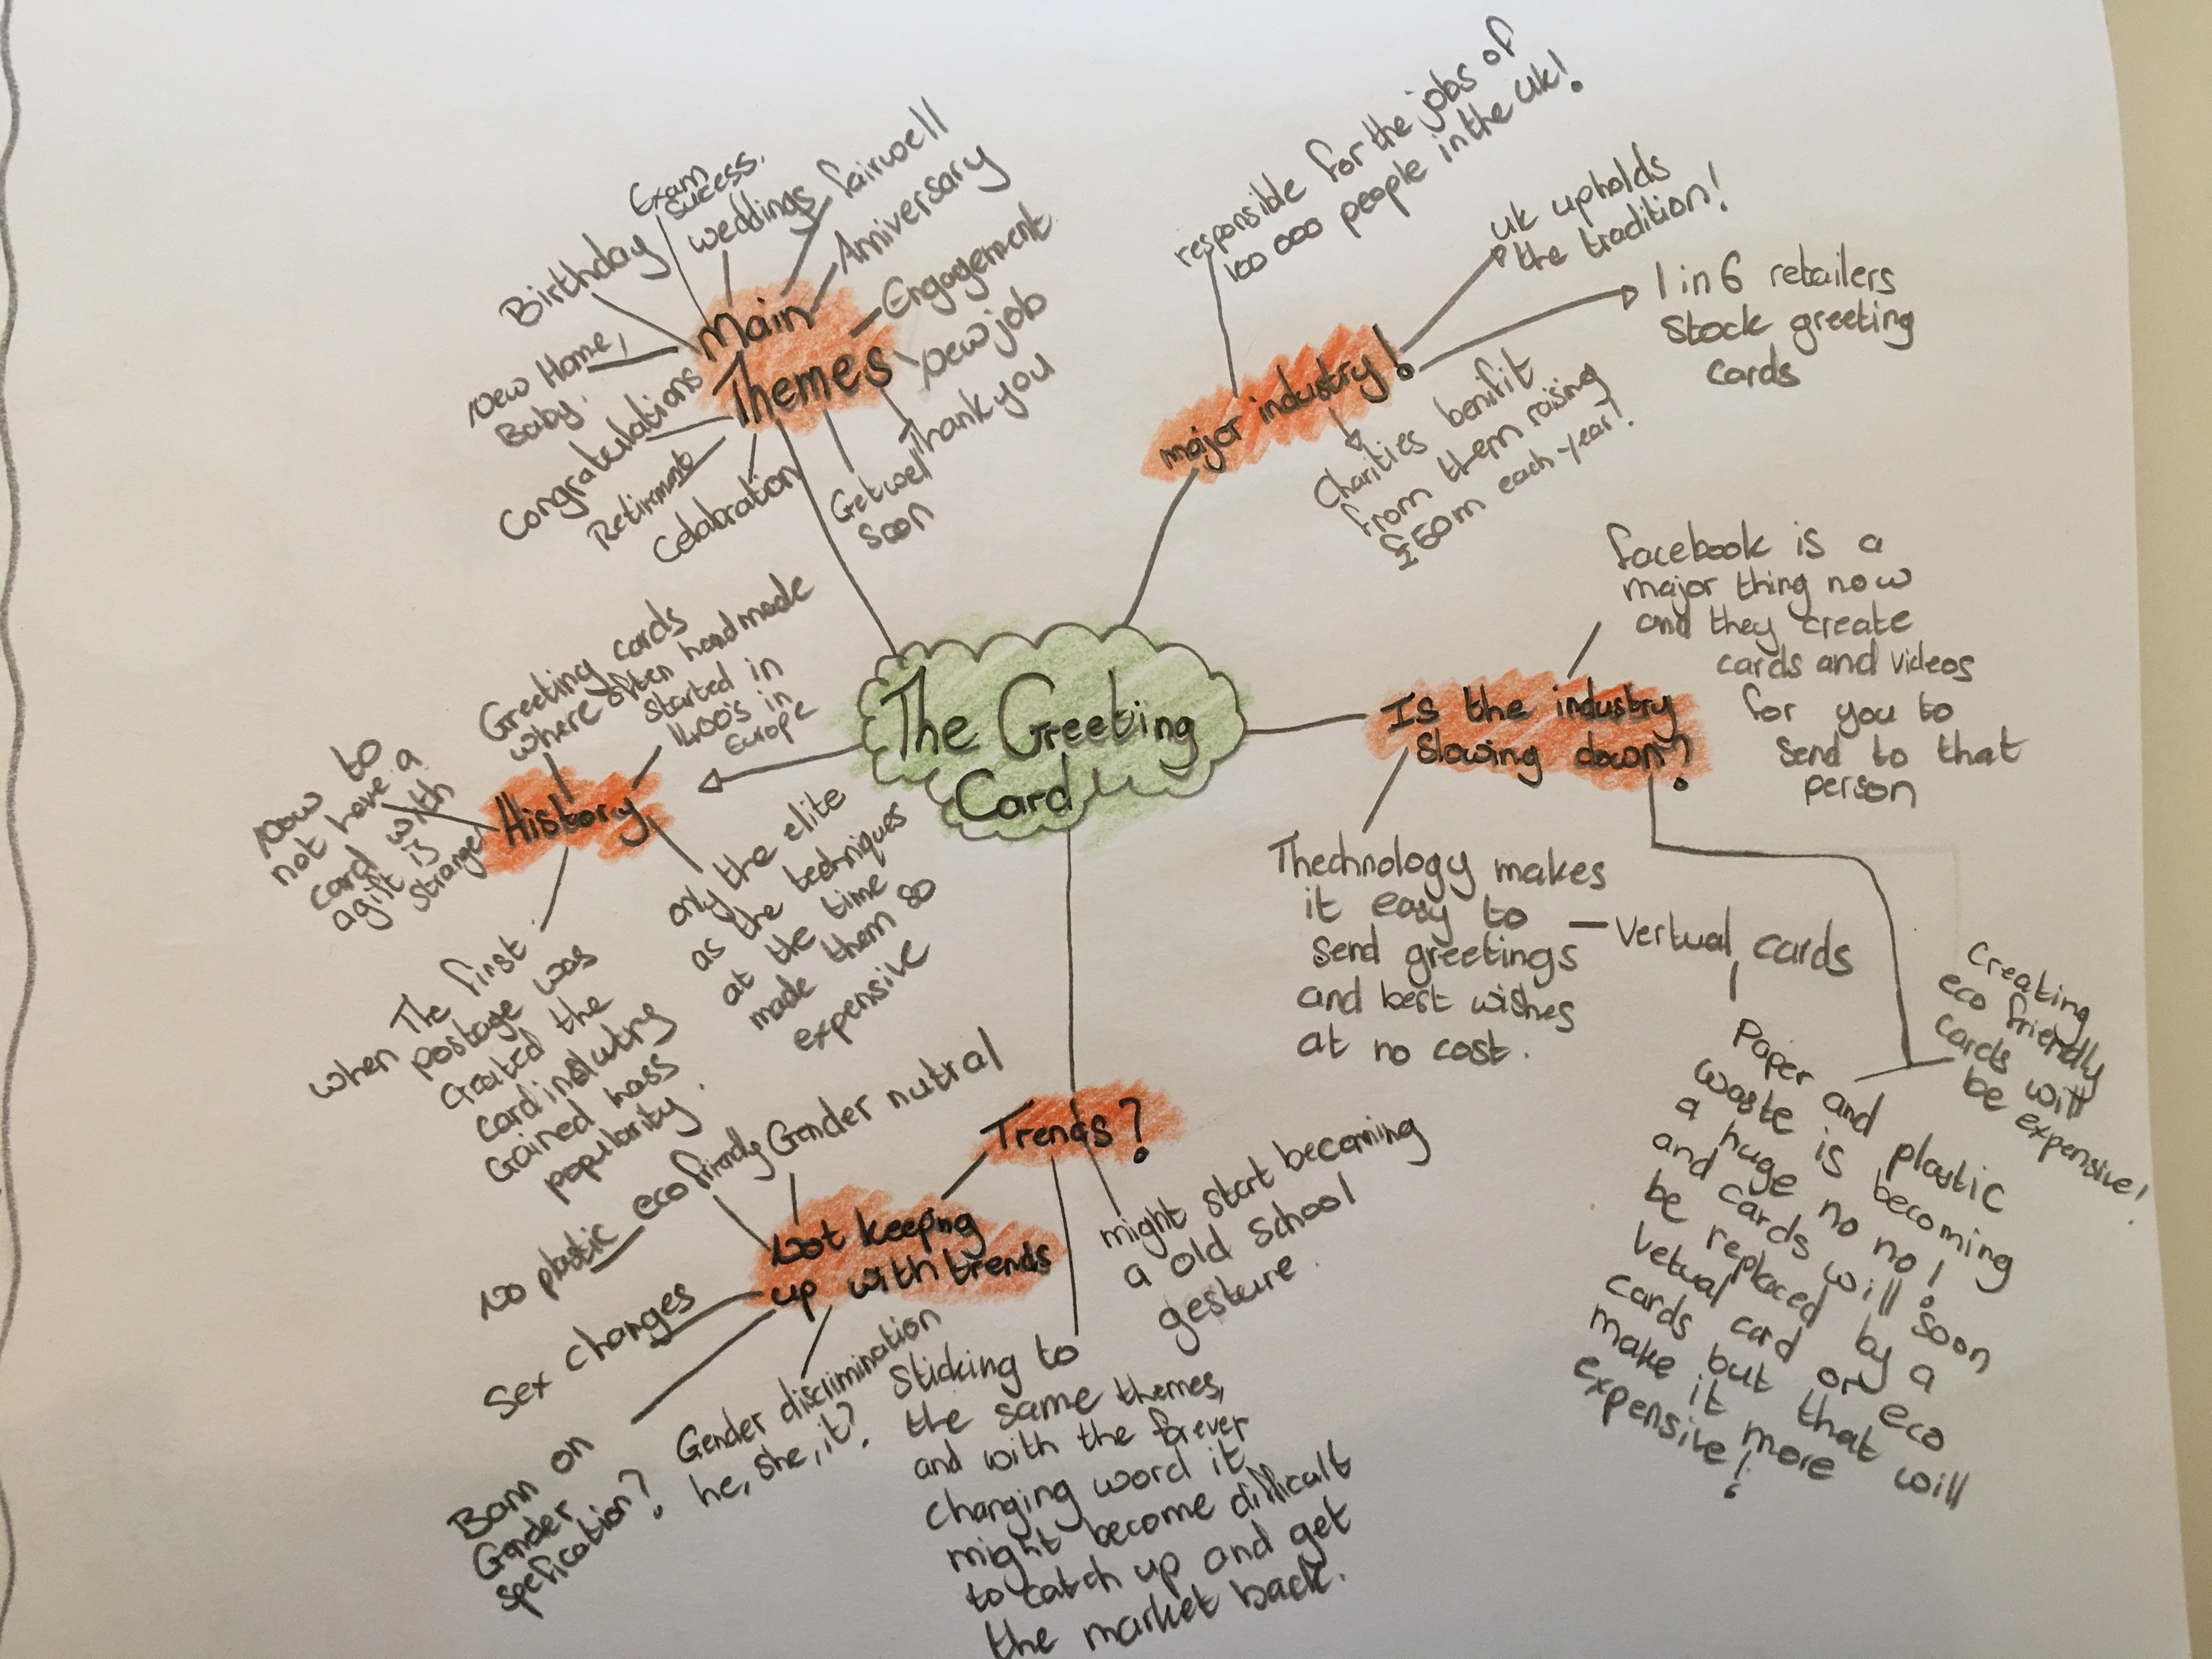 The Greeting
Card
Main
Themes
Exam
sucess.
weddings
fairwell
Anniversary
Engagement
New job
Thank you
Get well
soon
Celabration
Retirment
Congratulations
New Home,
Baby.
Birthday
major industry!
responsible for the jobs of
100 000 people in the uk!
uk upholds
the tradition!
1 in 6 retailers
Stock greeting
cards
Charities benifit
from them raising
£50m each year!
Is the industry
slowing down?
facebook is a
major thing now
and they create
cards and videos
for you to
send to that
person
Thechnology makes
it easy to
send greetings
and best wishes
at no cost.
Vertual cards
Paper and plastic
waste is becoming
a huge no no!
and cards will soon
be replaced by a
vetual card or eco
cards but that will
make it more
expensive!
Creating
eco friendly
cards will
be expensive!
Trends?
might start becoming
a old school
gesture.
Sticking to
the same themes,
and with the forever
changing word it
might become difficult
to catch up and get
the market back.
Not keeping
up with trends
Gender nutral
eco friendly
No plastic
Sex changes
Bann on
Gender
spefication?
Gender discrimination
he, she, it?
History
Greeting cards
where often handmade
started in
1400's in
Europe
only the elite
as the techniques
at the time
made them so
expensive
when The first
postage was
Created the
card industry
Gained mass
popularity.
Now to
not have a
card with
a gift is
strange